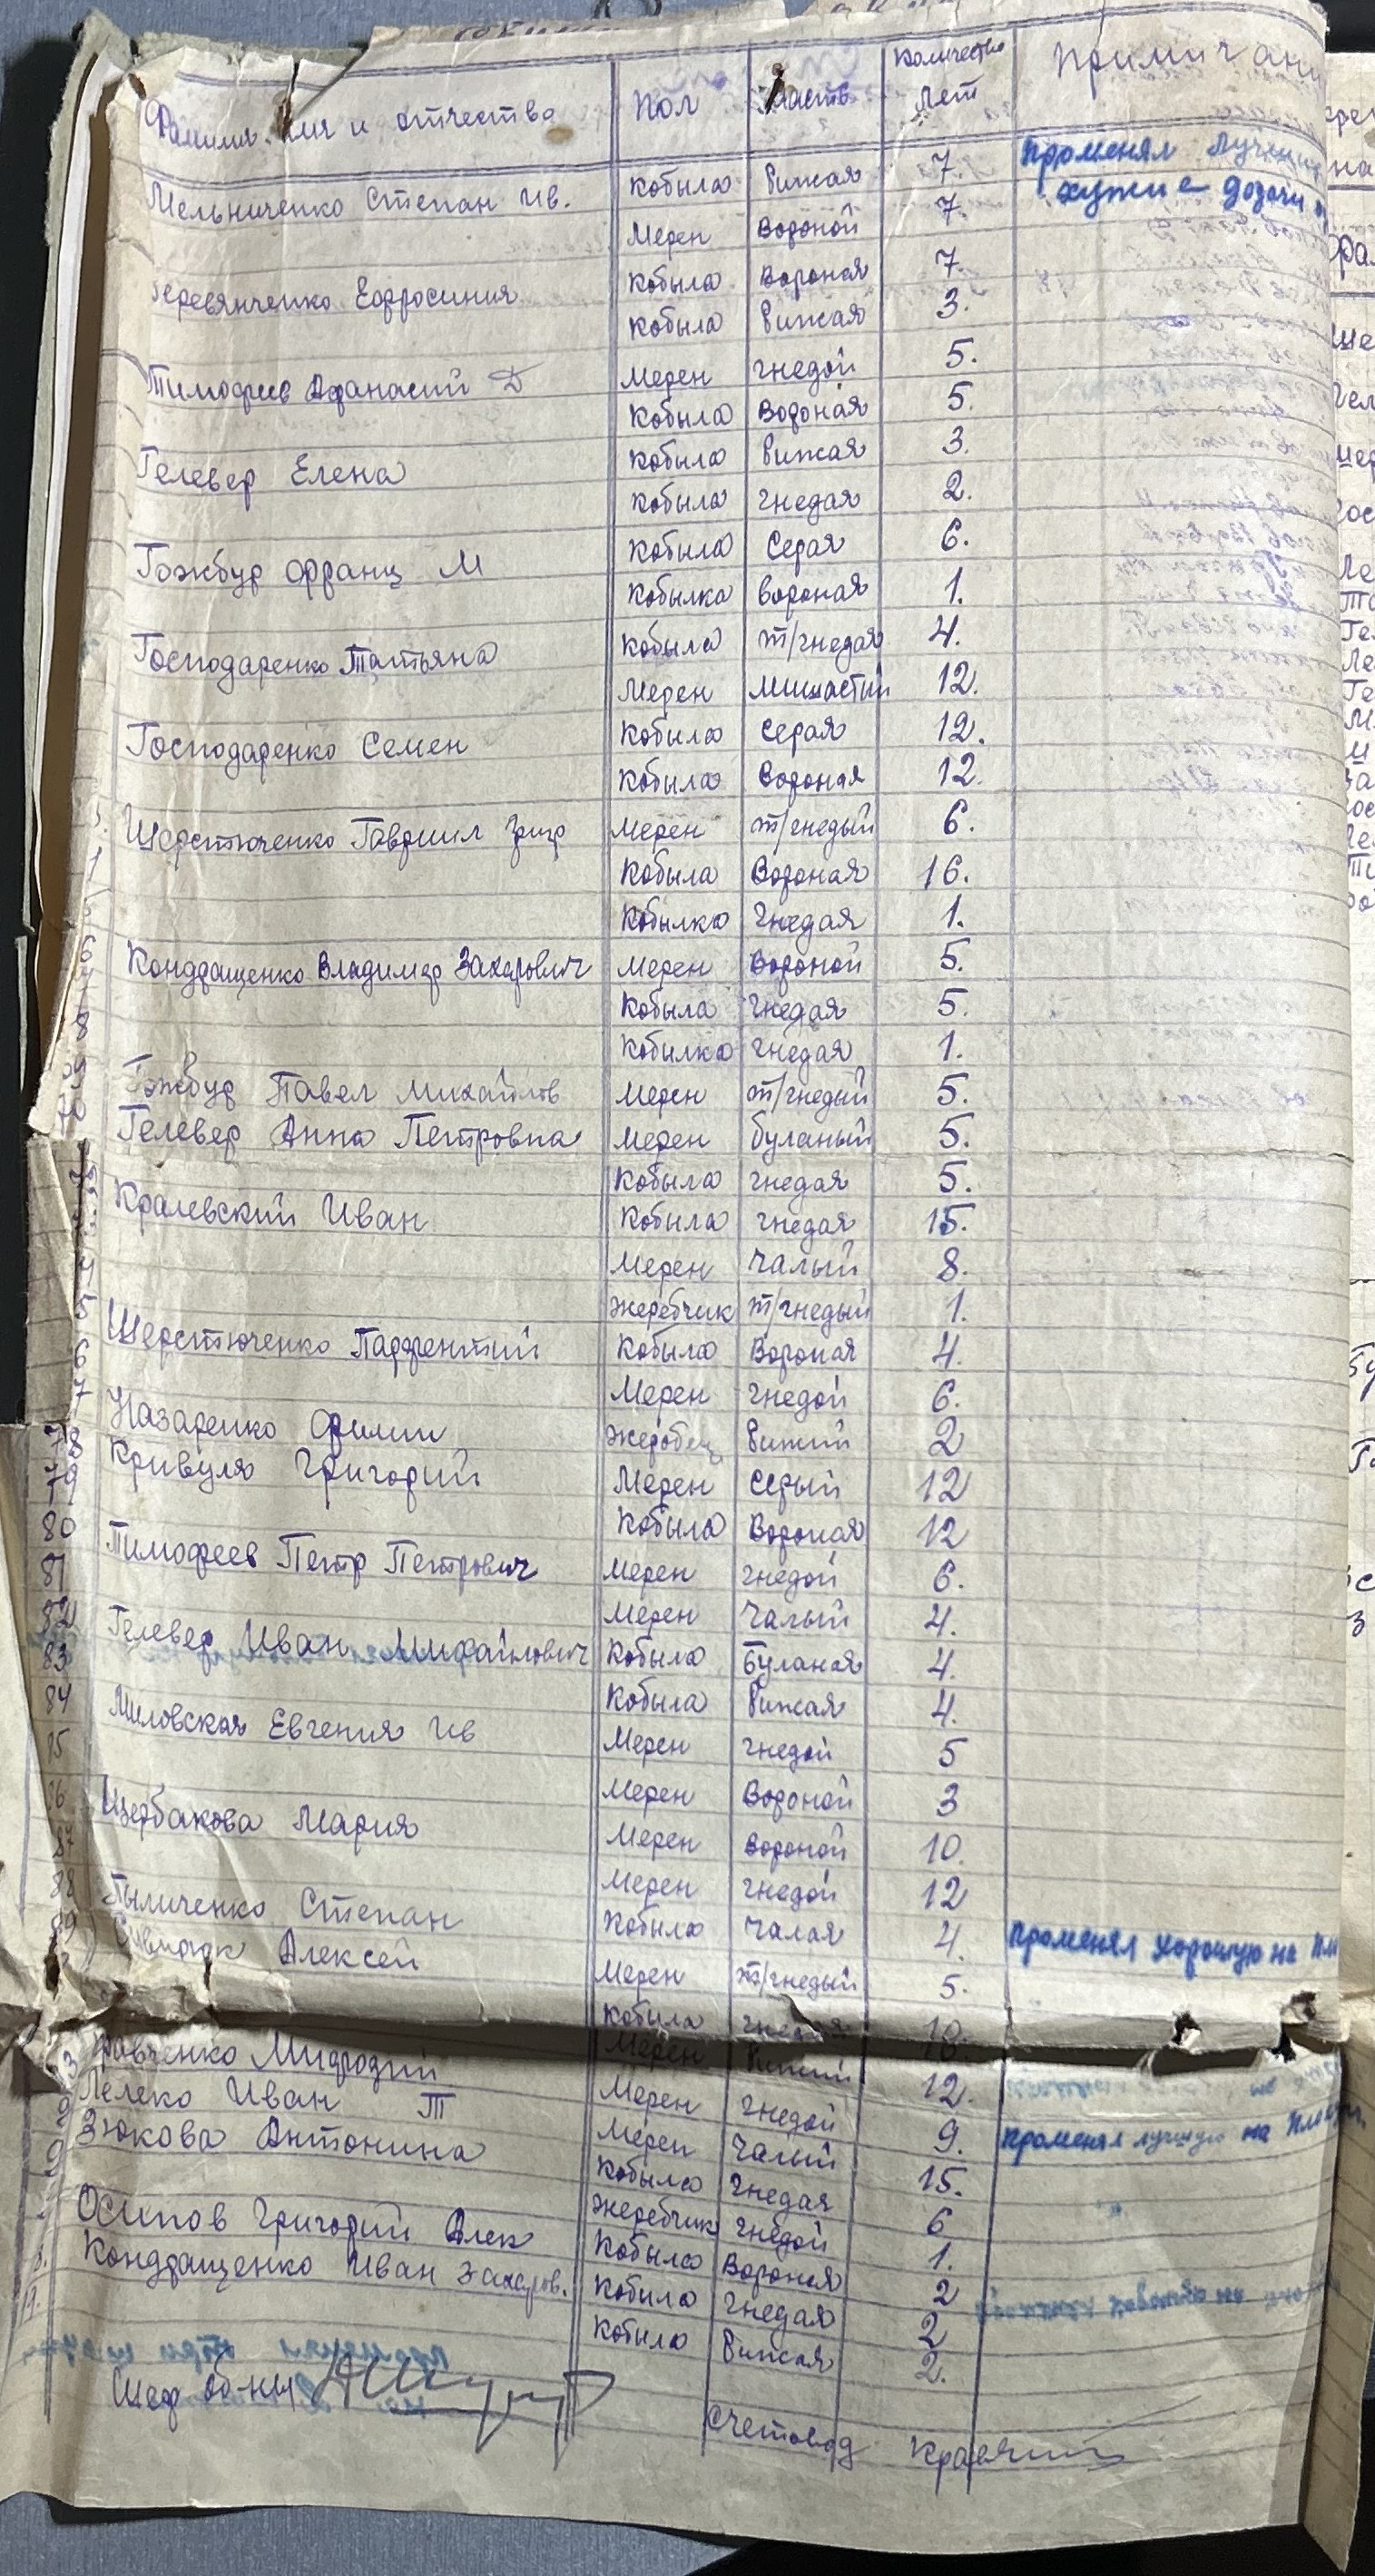 Фамилия имя и отчества Пол Масть Количество лет Примичани
Мельниченко Степан Ив. Кобыла Рижая 7. Променял лучшие
Мерен Вороной 7. хужие дозачи
еревянченко Ефросиния Кобыла Вороная 7.
Кобыла Рижая 3.
Тимофеев Афанасий Д Мерен гнедой 5.
Кобыла Вороная 5.
Гелевер Елена Кобыла Рижая 3.
Кобыла гнедая 2.
Гожбур Франц М Кобыла Серая 6.
Кобылка Вороная 1.
Господаренко Татьяна Кобыла т/гнедая 4.
Мерен мишастый 12.
Господаренко Семен Кобыла Серая 12.
Кобыла Вороная 12.
Шерстюченко Гавриил Григ Мерен т/гнедый 6.
Кобыла Вороная 16.
Кобылка гнедая 1.
Кондращенко Владимир Захарович Мерен Вороной 5.
Кобыла гнедая 5.
Кобилка гнедая 1.
Гожбур Павел Михайлов Мерен т/гнедый 5.
Гелевер Анна Петровна Мерен буланый 5.
Кобыла гнедая 5.
Кралевский Иван Кобыла гнедая 15.
Мерен Чалый 8.
5 жеребчик т/гнедый 1.
6 Шерстюченко Парфентий Кобыла Вороная 4.
7 Мерен гнедой 6.
78 Назаренко Филип Жеребец Рижий 2
79 Кривуля Григорий Мерен Серый 12
80 Кобыла Вороная 12
81 Тимофеев Петр Петрович Мерен гнедой 6.
82 Мерен Чалый 4.
83 Гелевер Иван Михайлович Кобыла Буланая 4.
84 Кобыла Рижая 4.
Миловская Евгения Ив Мерен гнедой 5
Мерен Вороной 3
87 Щербакова Мария Мерен Вороной 10.
88 Мерен гнедой 12
89 Пыличенко Степан Кобыла Чалая 4. променял хорошую на пл
Алексей Мерен т/гнедый 5.
Кобыла гнедая 10.
равченко Мифодий Мерен Рижий 12.
Лелеко Иван Т Мерен гнедой 9. променял лучшую на плохую
Зюкова Антонина Мерен Чалый 15.
Кобыла гнедая 6
жеребчик гнедой 1.
Осипов Григорий Алек Кобыла Вороная 2
Кондращенко Иван Захаров. Кобила гнедая 2
Кобыла Рижая 2.
Шеф об-ны
счетовод